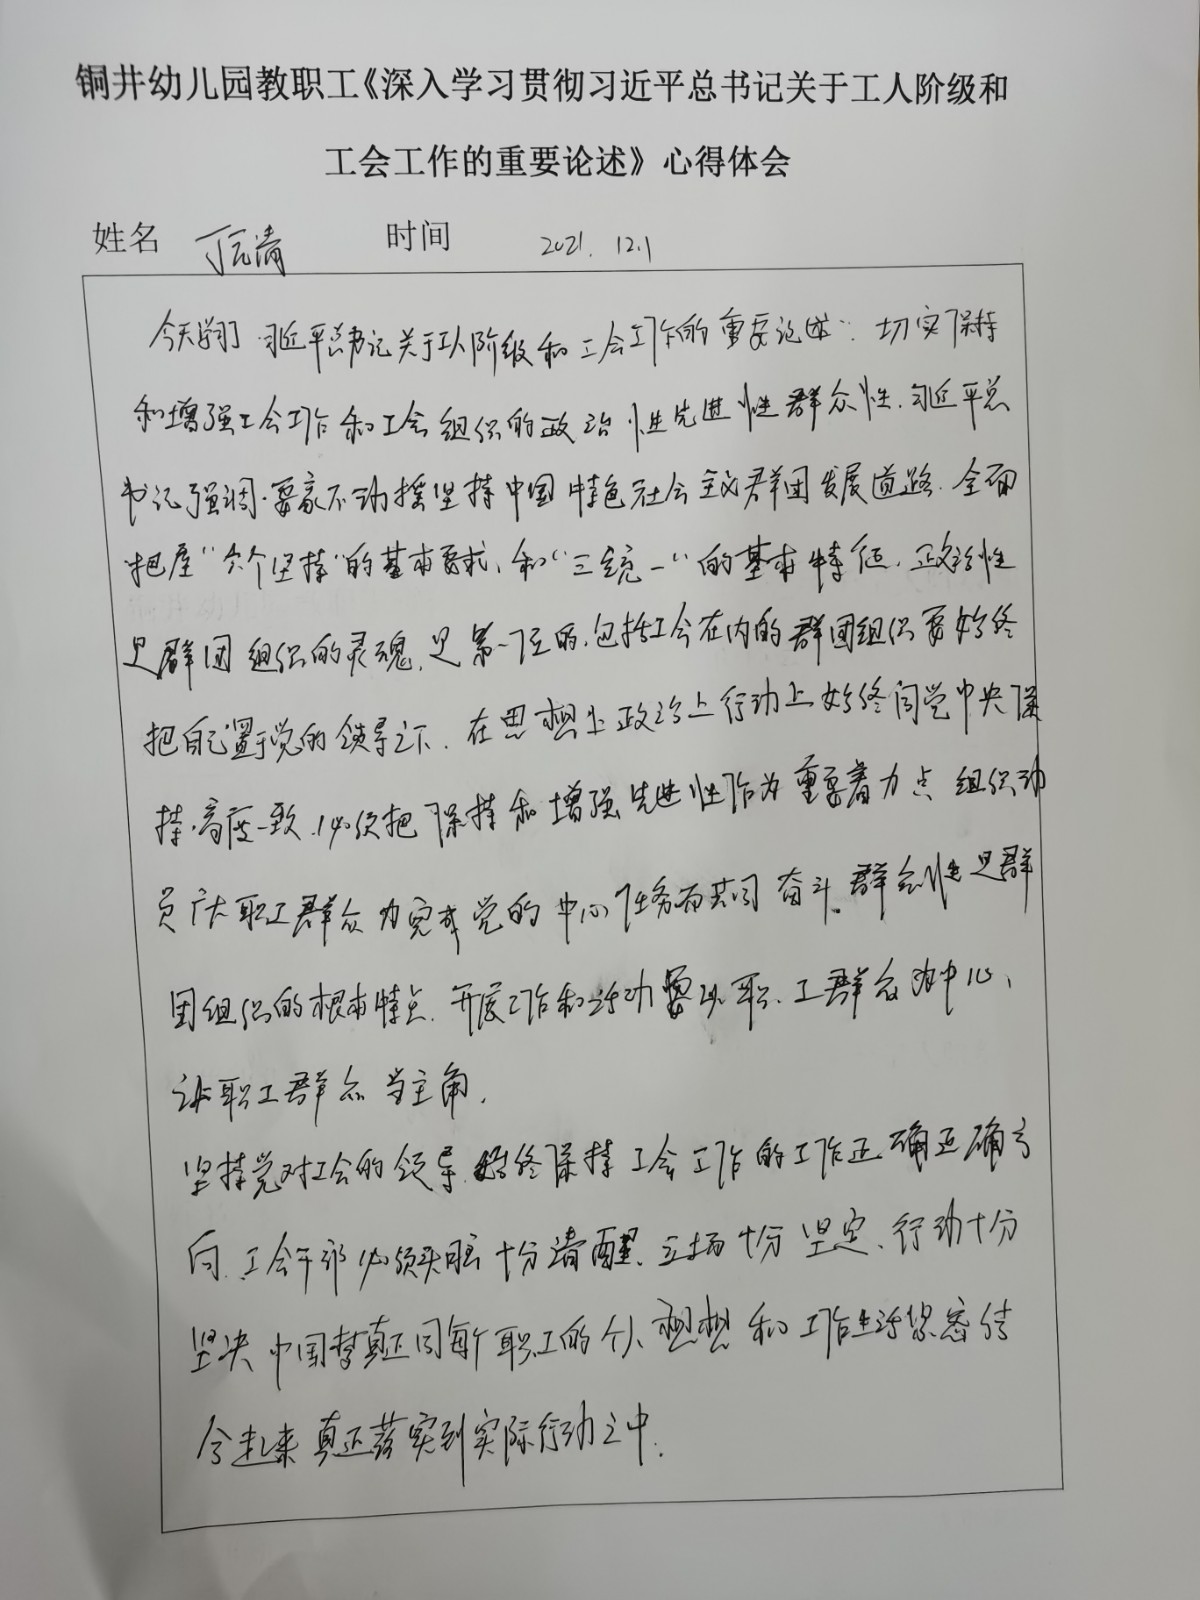 铜井幼儿园教职工《深入学习贯彻习近平总书记关于工人阶级和
工会工作的重要论述》心得体会
姓名 丁元清 时间 2021.12.1
今天学习习近平总书记关于工人阶级和工会工作的重要论述：切实保持
和增强工会工作和工会组织的政治性先进性群众性.习近平总
书记强调.要毫不动摇坚持中国特色社会主义群团发展道路.全面
把屋“六个坚持”的基本要求、和“三统一”的基本特征.政治性
是群团组织的灵魂,是第一位的.包括工会在内的群团组织要始终
把自己置于党的领导之下.在思想上政治上行动上始终同党中央保
持.高度一致.必须把保持和增强先进性作为重要着力点 组织动
员广大职工群众为完成党的中心任务而共同奋斗.群众性是群
团组织的根本特点.开展工作和活动要以职工群众为中心、
让职工群众当主角.
坚持党对工会的领导.始终保持工会工作的工作正确正确方
向.工会干部必须头脑十分清醒、立场十分坚定、行动十分
坚决 中国梦真正同每个职工的个人想想和工作生活紧密结
合起来 真正落实到实际行动之中.